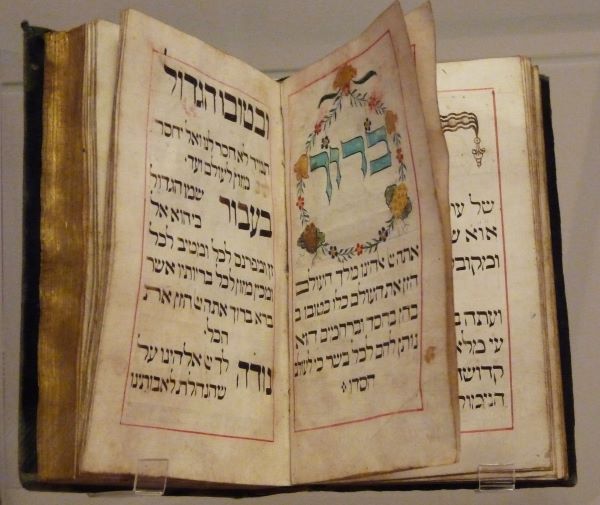 של
ועתה
ברוך
אתה יי אלהינו מלך העולם
הזן את העולם כלו בטובו ב
בחן בחסד וברחמים הוא
נותן לחם לכל בשר כי לעולם
חסדו
ובטובו הגדול
תמיד לא חסר לנו ואל יחסר
מזון לעולם ועד.
בעבור שמו הגדול
כי הוא אל
זן ומפרנס לכל ומטיב לכל
ומכין מזון לכל בריותיו אשר
ברא ברוך אתה יי הזן את
הכל.
נודה לך יי אלהינו על
שהנחלת לאבותינו